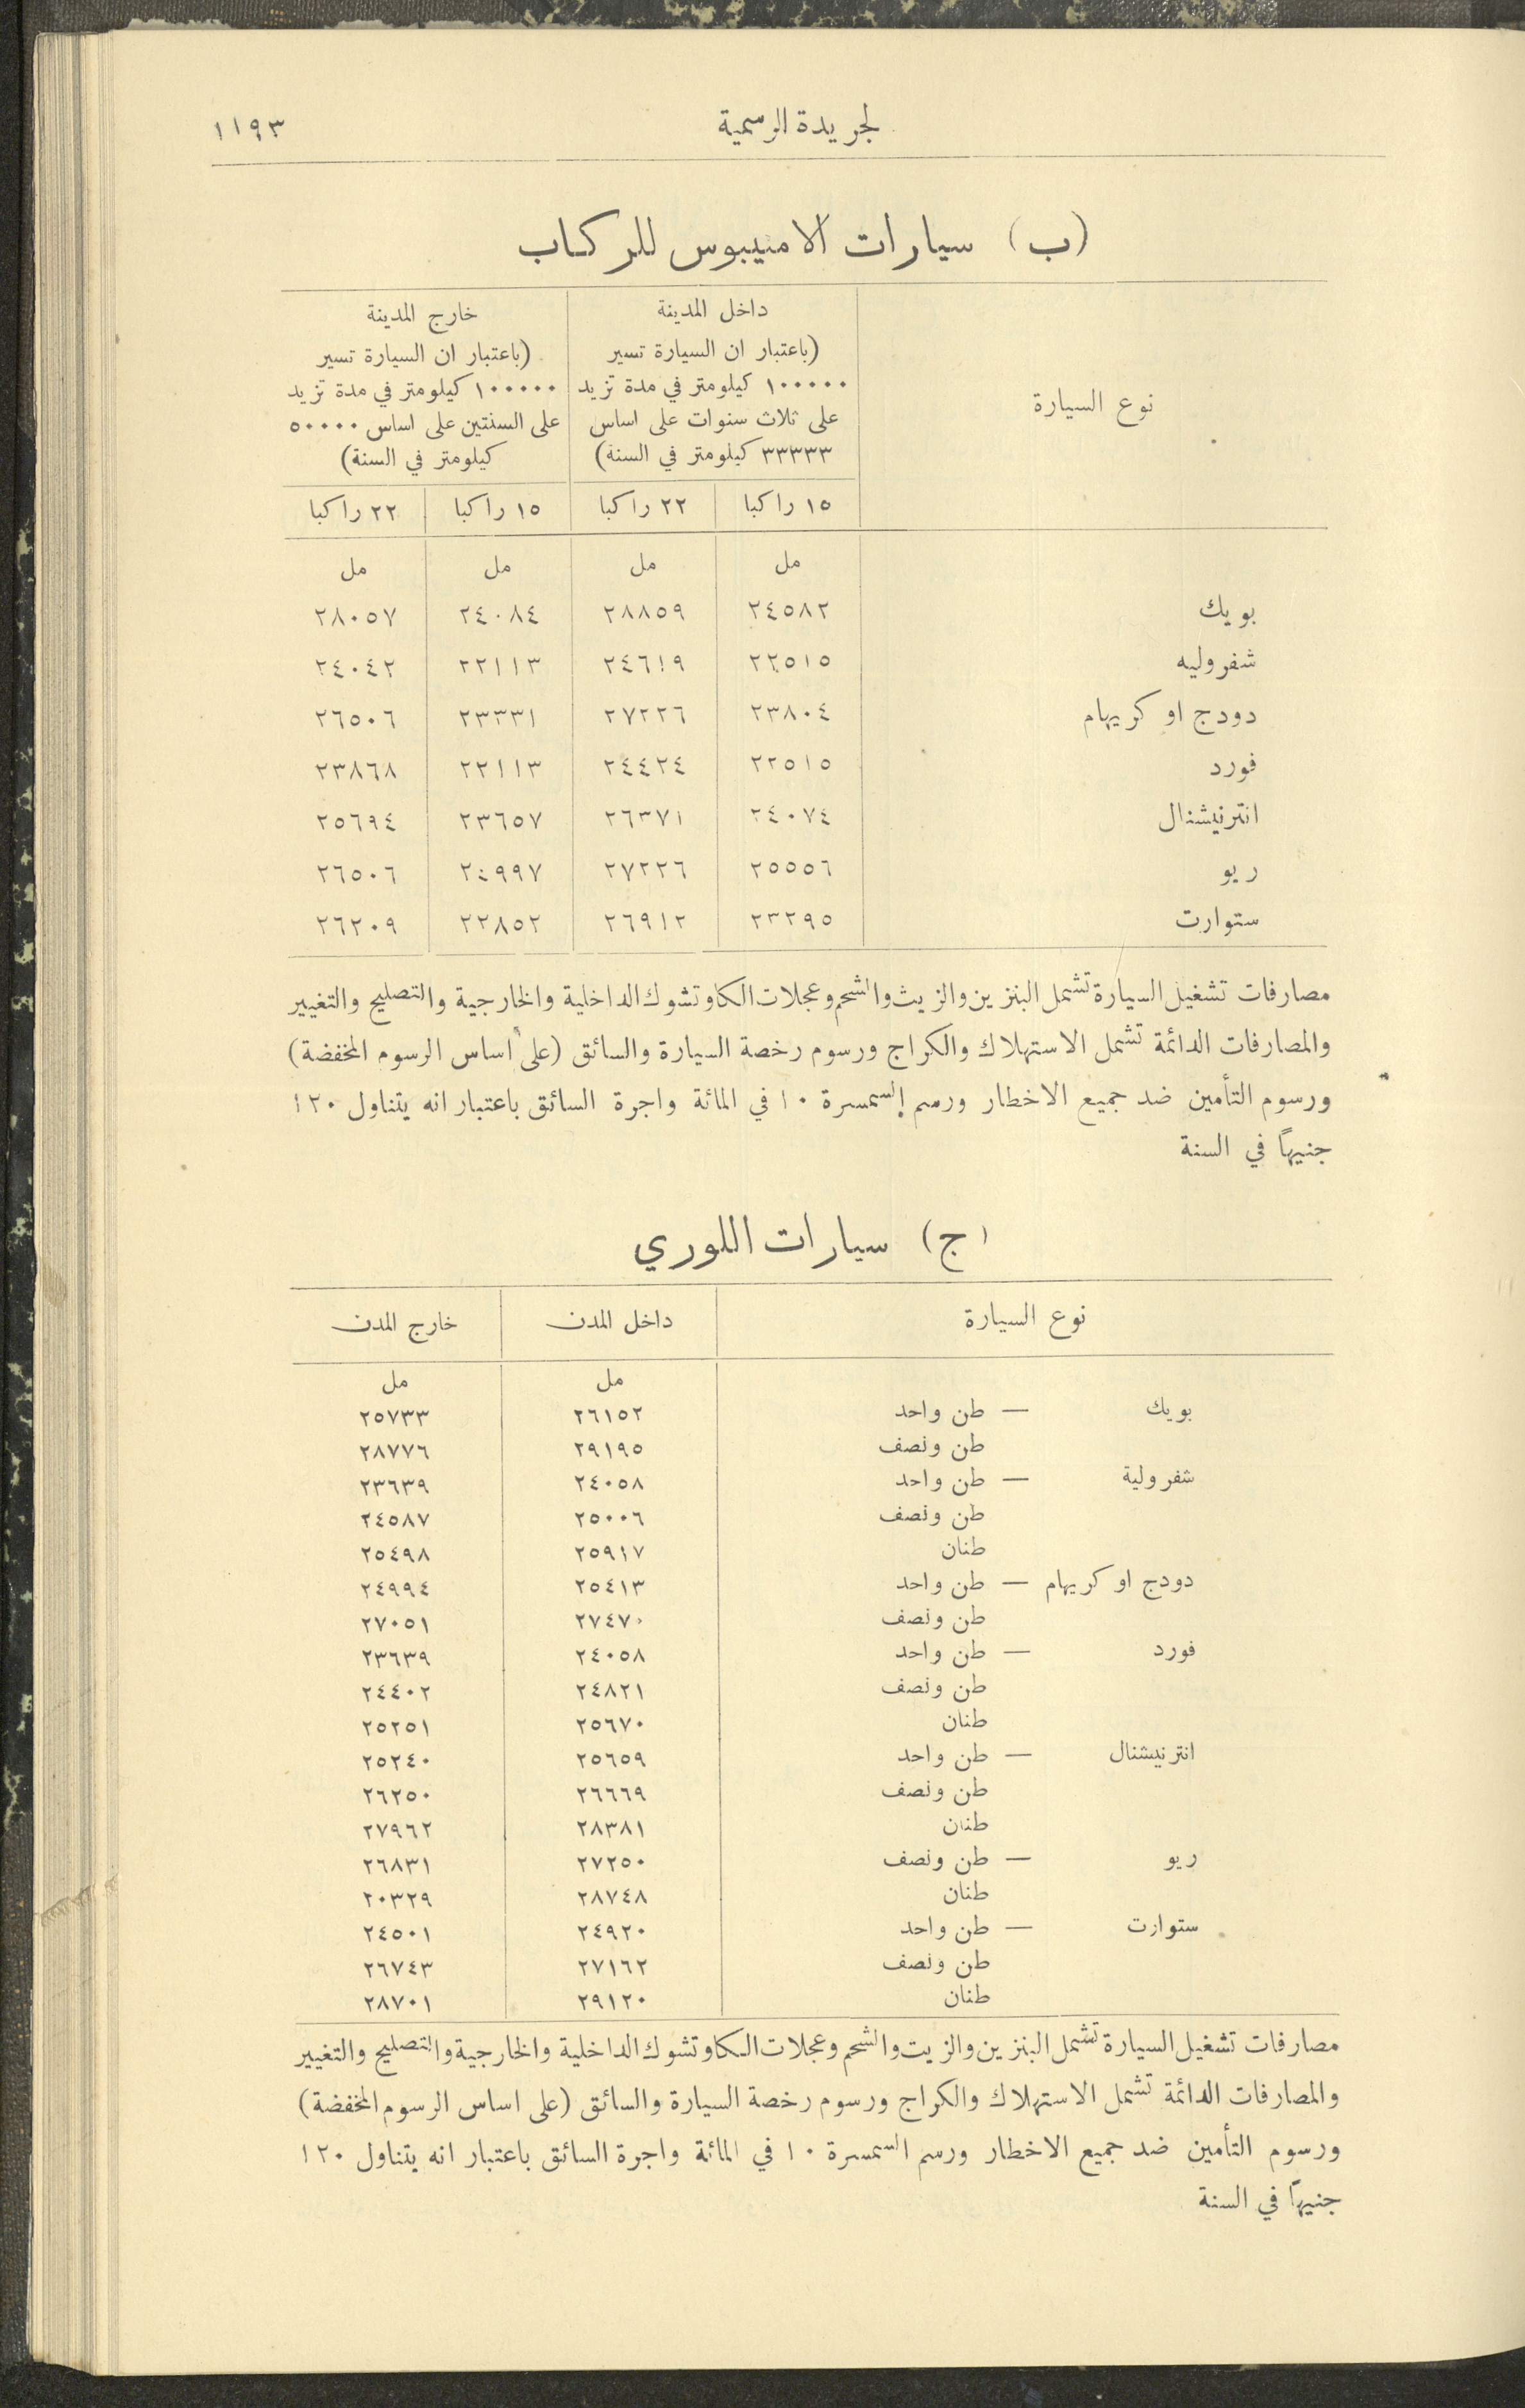 لجريدة الرسمية ١١٩٣
(ب) سيارات الامنيبوس للركاب
نوع السيارة
داخل المدينة
(باعتبار ان السيارة تسير
١٠٠٠٠٠ كيلومتر في مدة تزيد
على ثلاث سنوات على اساس
٣٣٣٣٣ كيلومتر في السنة)
خارج المدينة
(باعتبار ان السيارة تسير
١٠٠٠٠٠ كيلومتر في مدة تزيد
على السنتين على اساس ٥٠٠٠٠
كيلومتر في السنة)
١٥ راكبا ٢٢ راكبا ١٥ راكبا ٢٢ راكبا
مل مل مل مل
بويك ٢٤٥٨٢ ٢٨٨٥٩ ٢٤٠٨٤ ٢٨٠٥٧
شفروليه ٢٢٥١٥ ٢٤٦١٩ ٢٢١١٣ ٢٤٠٤٢
دودج او كريهام ٢٣٨٠٤ ٢٧٢٢٦ ٢٣٣٣١ ٢٦٥٠٦
فورد ٢٢٥١٥ ٢٤٤٢٤ ٢٢١١٣ ٢٣٨٦٨
انترنيشنال ٢٤٠٧٤ ٢٦٣٧١ ٢٣٦٥٧ ٢٥٦٩٤
ريو ٢٥٥٥٦ ٢٧٢٢٦ ٢٤٩٩٧ ٢٦٥٠٦
ستوارت ٢٣٢٩٥ ٢٦٩١٢ ٢٢٨٥٢ ٢٦٢٠٩
مصارفات تشغيل السيارة تشمل البنزين والزيت والشحم وعجلات الكاوتشوك الداخلية والخارجية والتصليح والتغيير
والمصارفات الدائمة تشمل الاستهلاك والكراج ورسوم رخصة السيارة والسائق (على اساس الرسوم المخفضة)
ورسوم التأمين ضد جميع الاخطار ورسم السمسرة ١٠ في المائة واجرة السائق باعتبار انه يتناول ١٢٠
جنيهاً في السنة
(ج) سيارات اللوري
نوع السيارة داخل المدن خارج المدن
مل مل
بويك — طن واحد ٢٦١٥٢ ٢٥٧٣٣
طن ونصف ٢٩١٩٥ ٢٨٧٧٦
شفرولية — طن واحد ٢٤٠٥٨ ٢٣٦٣٩
طن ونصف ٢٥٠٠٦ ٢٤٥٨٧
طنان ٢٥٩١٧ ٢٥٤٩٨
دودج او كريهام — طن واحد ٢٥٤١٣ ٢٤٩٩٤
طن ونصف ٢٧٤٧٠ ٢٧٠٥١
فورد — طن واحد ٢٤٠٥٨ ٢٣٦٣٩
طن ونصف ٢٤٨٢١ ٢٤٤٠٢
طنان ٢٥٦٧٠ ٢٥٢٥١
انترنيشنال — طن واحد ٢٥٦٥٩ ٢٥٢٤٠
طن ونصف ٢٦٦٦٩ ٢٦٢٥٠
طنان ٢٨٣٨١ ٢٧٩٦٢
ريو — طن ونصف ٢٧٢٥٠ ٢٦٨٣١
طنان ٢٨٧٤٨ ٢٠٣٢٩
ستوارت — طن واحد ٢٤٩٢٠ ٢٤٥٠١
طن ونصف ٢٧١٦٢ ٢٦٧٤٣
طنان ٢٩١٢٠ ٢٨٧٠١
مصارفات تشغيل السيارة تشمل البنزين والزيت والشحم وعجلات الكاوتشوك الداخلية والخارجية والتصليح والتغيير
والمصارفات الدائمة تشمل الاستهلاك والكراج ورسوم رخصة السيارة والسائق (على اساس الرسوم المخفضة)
ورسوم التأمين ضد جميع الاخطار ورسم السمسرة ١٠ في المائة واجرة السائق باعتبار انه يتناول ١٢٠
جنيهاً في السنة